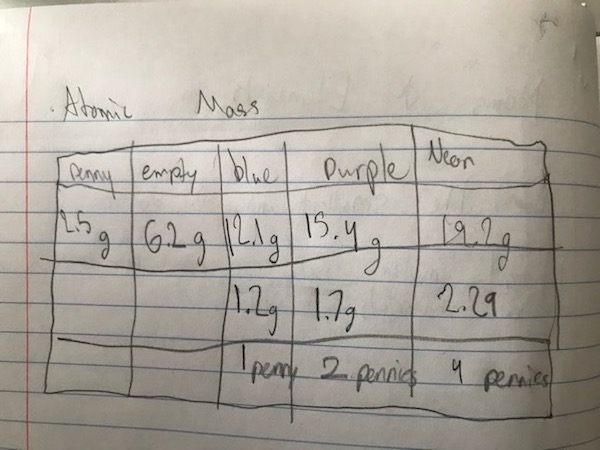 Atomic Mass
penny empty blue purple Neon
2.5g 6.2g 12.1g 15.4g 19.2g
1.2g 1.7g 2.2g
1 penny 2 pennies 4 pennies